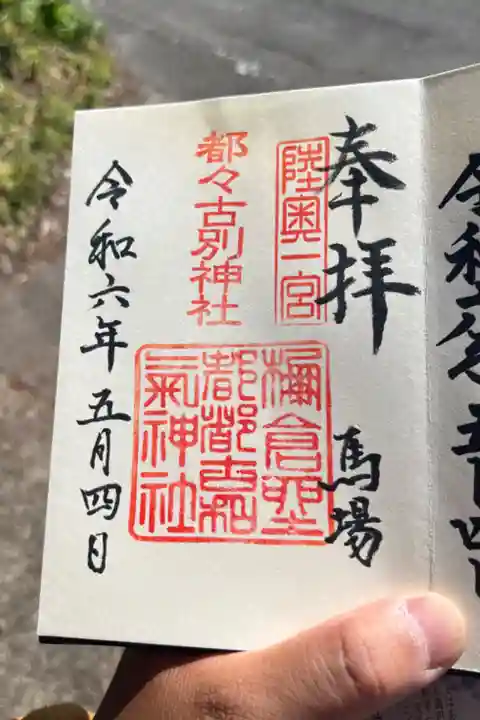 令和六年五月四日
奉拝 馬場
陸奥一宮
都々古別神社
棚倉
都都古和
氣神社
令和六年五月四日